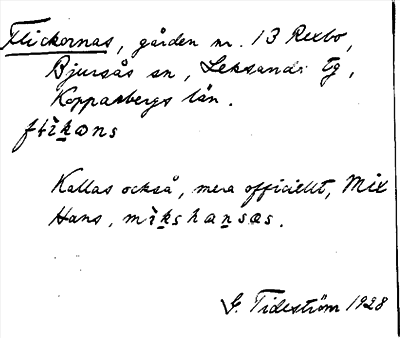 Flickornas, gården nr. 13 Rexbo,
Bjursås sn, Leksands tg,
Kopparbergs län.
Kallas också, mera officiellt, Mix
Hans, mìkshansas.
G. Tideström 1928